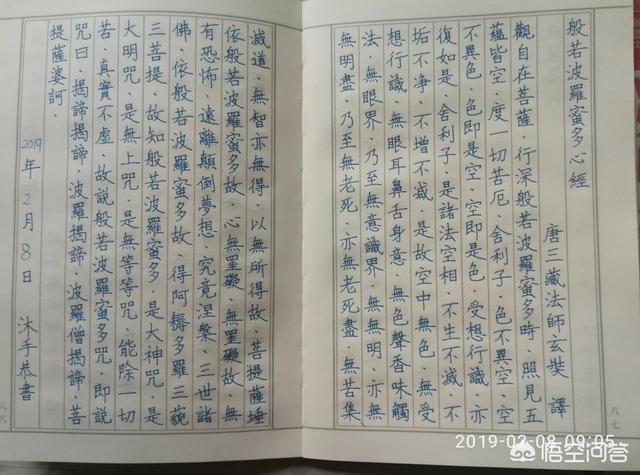 般若波羅蜜多心經
唐三藏法師玄奘 譯
觀自在菩薩·行深般若波羅蜜多時·照見五
蘊皆空·度一切苦厄·舍利子·色不異空·空
不異色·色即是空·空即是色·受想行識·亦
復如是·舍利子·是諸法空相·不生不滅·不
垢不净·不增不减·是故空中無色·無受
想行識·無眼耳鼻舌身意·無色聲香味觸
法·無眼界·乃至無意識界·無無明·亦無
無明盡·乃至無老死·亦無老死盡·無苦集
八七
滅道·無智亦無得·以無所得故·菩提薩埵
依般若波羅蜜多故·心無罣礙·無罣礙故·無
有恐怖·遠離顛倒夢想·究竟涅槃·三世諸
佛·依般若波羅蜜多故·得阿耨多羅三藐
三菩提·故知般若波羅蜜多·是大神咒·是
大明咒·是無上咒·是無等等咒·能除一切
苦·真實不虛·故說般若波羅蜜多咒·即說
咒曰·揭諦揭諦·波羅揭諦·波羅僧揭諦·菩
提薩婆訶·
2019年2月8日 沐手恭書
八八
2019-02-08 09:05
悟空问答